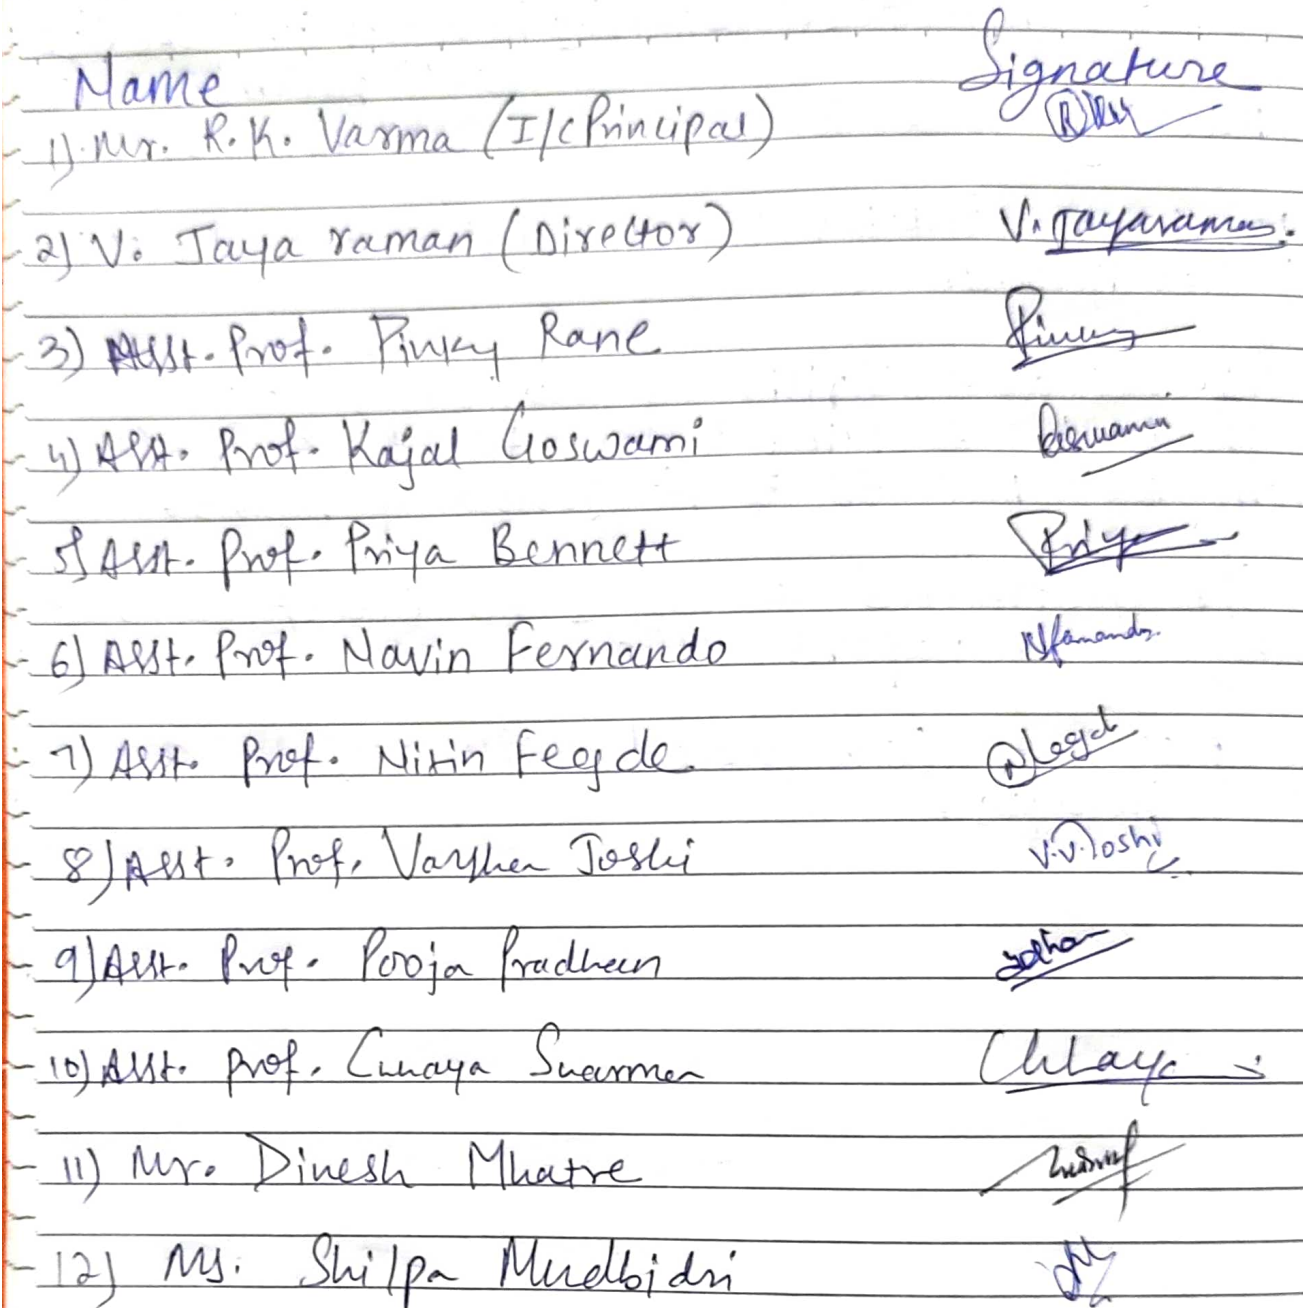 Name Signature
1) Mr. R.K. Varma (I/C Principal)
2) V. Jaya raman (Director) V. Jayaraman.
3) Asst. Prof. Pinky Rane Pinky
4) Asst. Prof. Kajal Goswami Goswami
5) Asst. Prof. Priya Bennett Priya
6) Asst. Prof. Navin Fernando NFernando
7) Asst. Prof. Nitin Feegde
8) Asst. Prof. Varsha Joshi V.V.Joshi
9) Asst. Prof. Pooja Pradhan
10) Asst. Prof. Chhaya Sharma Chhaya
11) Mr. Dinesh Mhatre
12) Ms. Shilpa Mudbidri